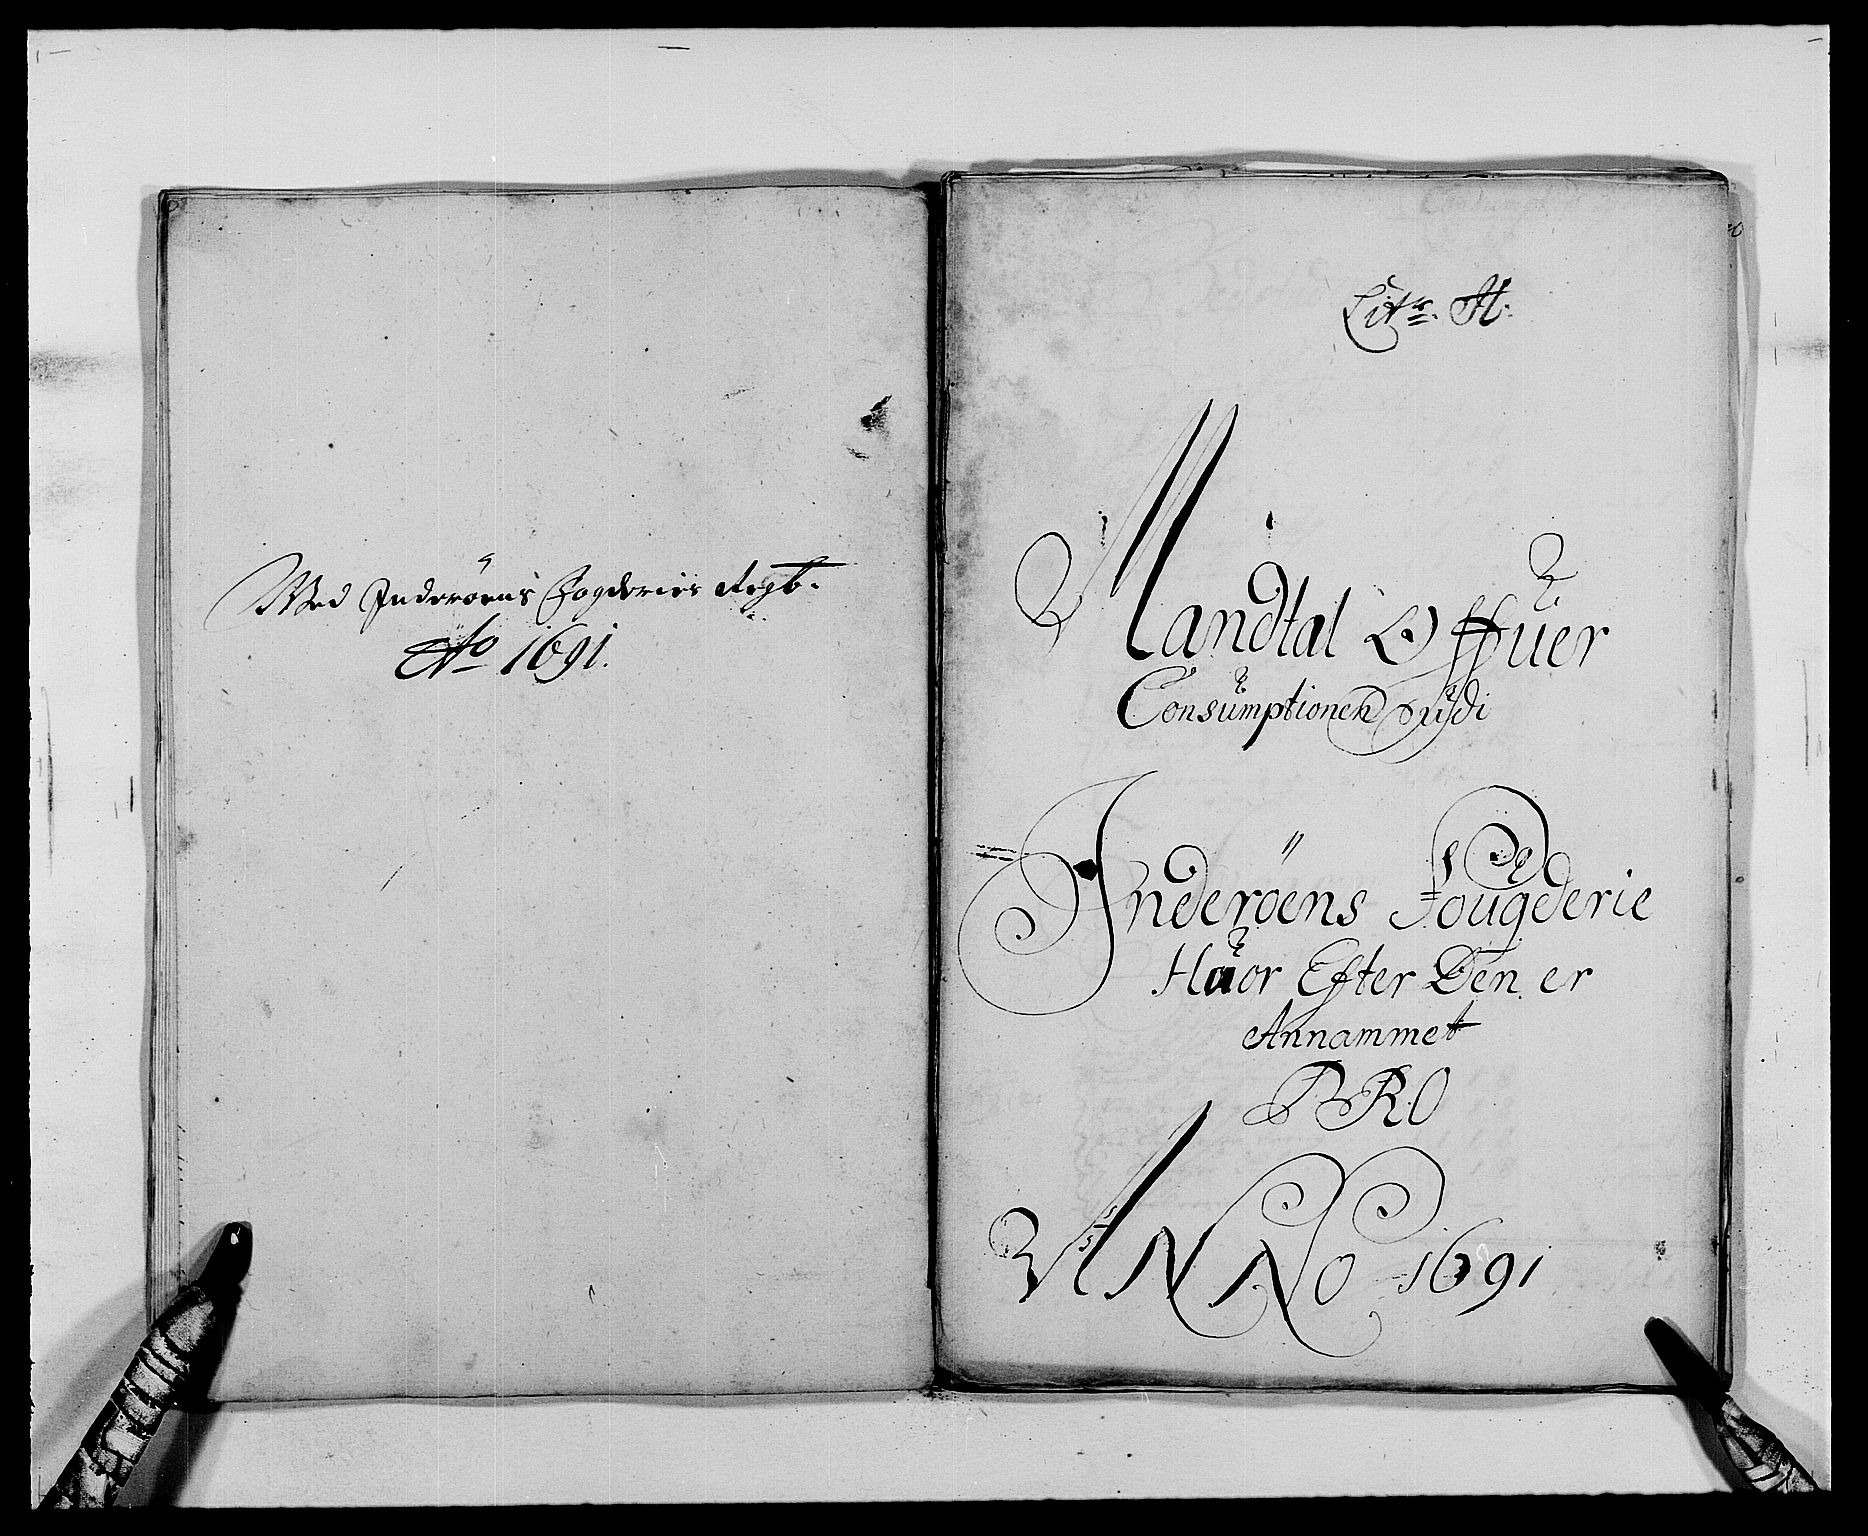 Med Inderøens Fogderies Regb.
Ao 1691.
Litr. H.
Mandtal Offuer
Consumptionen Udi
Inderøens Fougderie
Huor Efter Den er
Annammet
PRO
ANNO 1691